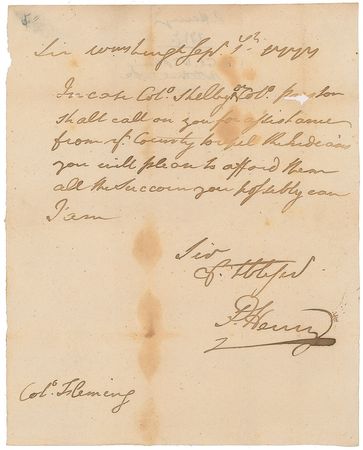 Sir Wmsburgh Sept. 1st. 1777
In case Colo. Shelby or Colo. Preston
shall call on you for assistance
from yr. County to repel the Indians
you will please to afford them
all the Succour you possibly can
I am
Sir
Yr. Hble Ser
P. Henry
Colo. Fleming